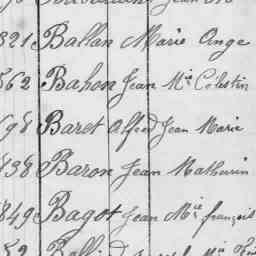 821 Ballan Marie Ange
562 Bahon Jean Mie Célestin
698 Baret Alfred Jean Marie
438 Baron Jean Mathurin
849 Bagot Jean Mie françois